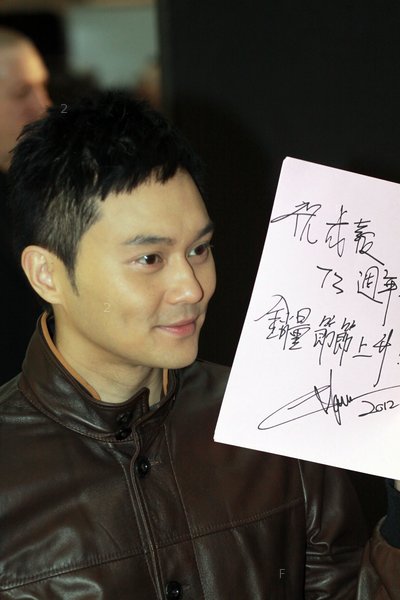 祝成報
73週年
銷量節節上升
2012